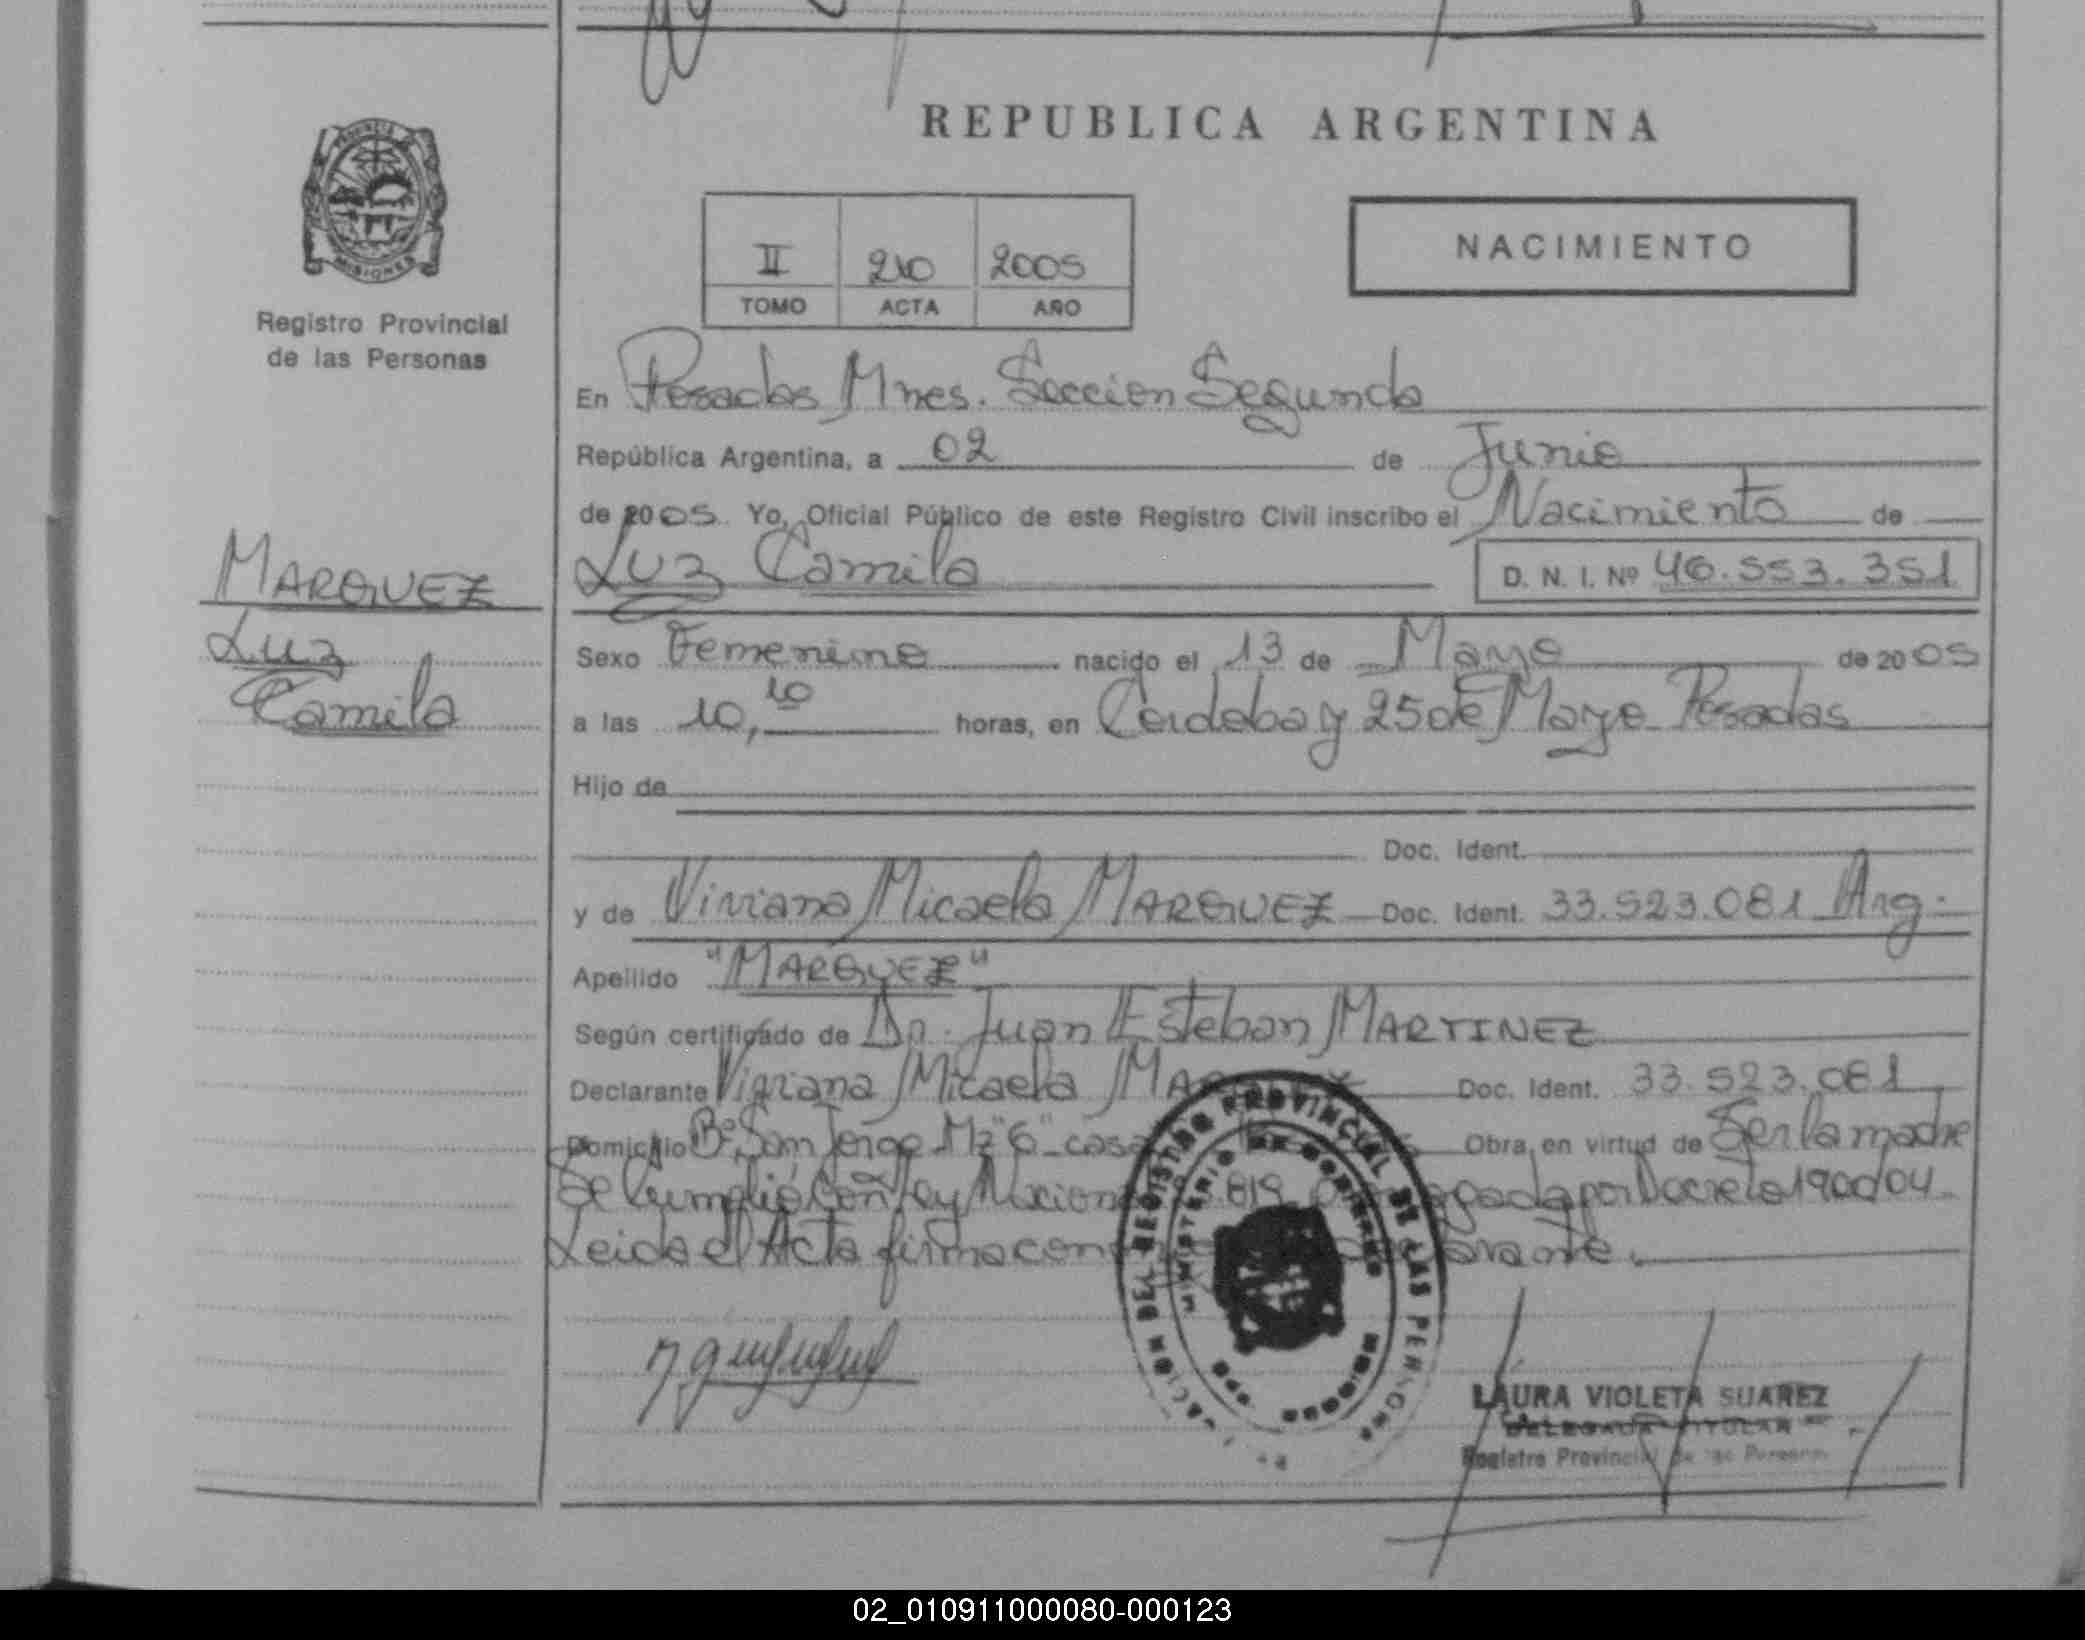 REPUBLICA ARGENTINA
PROVINCIA DE
MISIONES
Registro Provincial
de las Personas
II 210 2005
TOMO ACTA AÑO
NACIMIENTO
En Posadas Mnes. Sección Segunda
República Argentina, a 02 de Junio
de 2005. Yo, Oficial Público de este Registro Civil inscribo el Nacimiento de
Luz Camila D. N. I. Nº 46.553.351
MARQUEZ
Luz
Camila
Sexo Femenino nacido el 13 de Mayo de 2005
a las 10,10 horas, en Cordoba y 25 de Mayo Posadas
Hijo de
Doc. Ident.
y de Viviana Micaela MARQUEZ Doc. Ident. 33.523.081 Arg.
Apellido "MARQUEZ"
Según certificado de Dr. Juan Esteban MARTINEZ
Declarante Viviana Micaela Doc. Ident. 33.523.081
Domicilio Bº San Jorge Mz "6" casa Obra en virtud de Ser la madre
Se Cumplió con Ley Nacional por Decreto 190/04
Leida el Acta firma con
REGISTRO PROVINCIAL DE LAS PERSONAS
MINISTERIO DE GOBIERNO
LAURA VIOLETA SUAREZ
DELEGADA TITULAR
Registro Provincial de las Personas
02_010911000080-000123